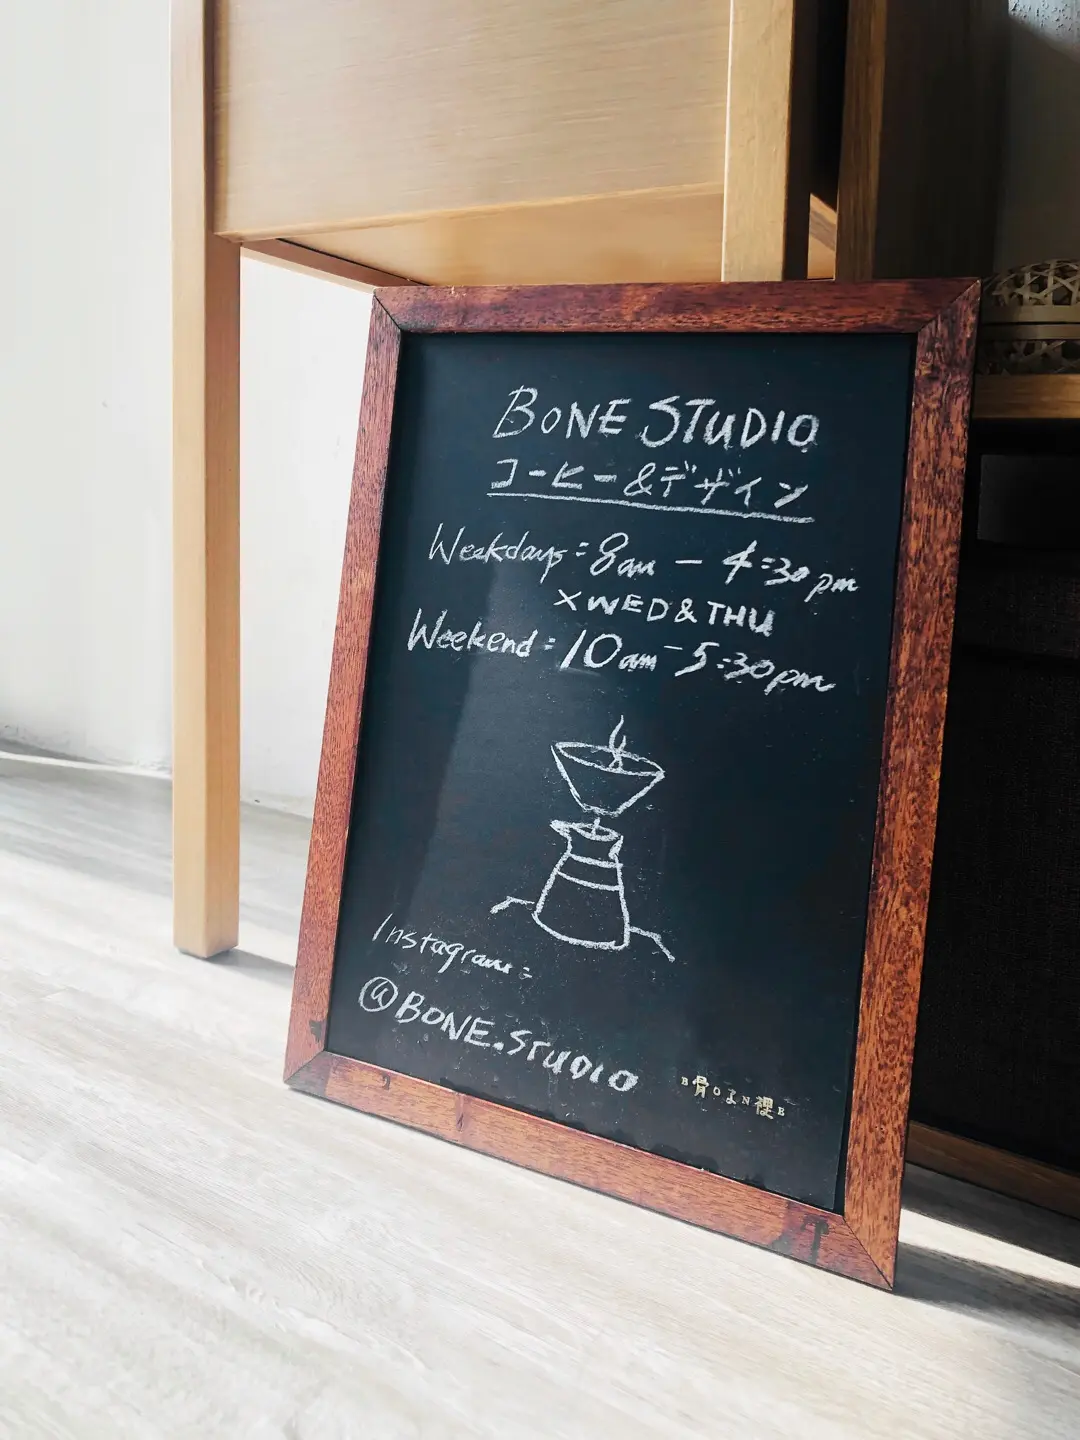 BONE STUDIO
コーヒー&デザイン
Weekdays: 8am - 4:30pm
×WED & THU
Weekend: 10am - 5:30pm
Instagram:
@BONE.STUDIO
B骨OまN裡E